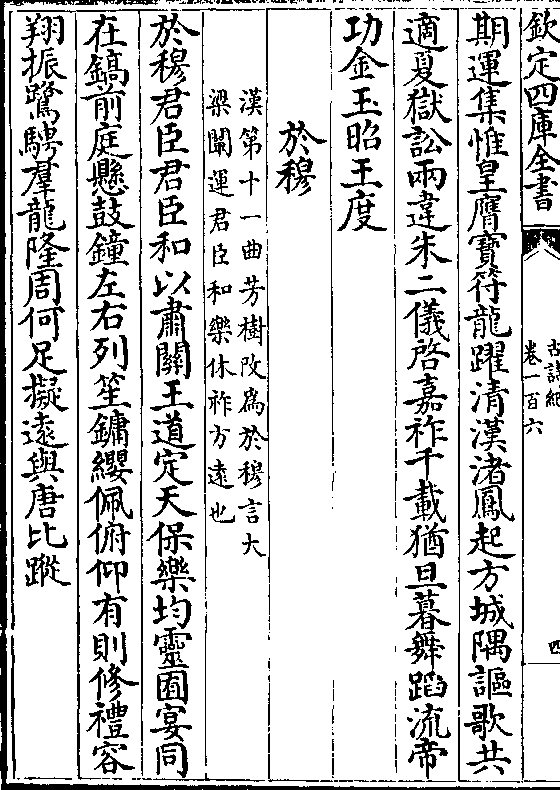 欽定四庫全書
古詩紀
卷一百六
四
期運集惟皇膺寶符龍躍清漢渚鳳起方城隅謳歌共
適夏獄訟兩違朱二儀啓嘉祚千載猶旦暮舞蹈流帝
功金玉昭王度
於穆
漢第十一曲芳樹改爲於穆言大
梁闡運君臣和樂休祚方遠也
於穆君臣君臣和以肅關王道定天保樂均靈囿宴同
在鎬前庭懸鼓鐘左右列笙鏞纓佩俯仰有則修禮容
翔振鷺騁羣龍隆周何足擬遠與唐比蹤